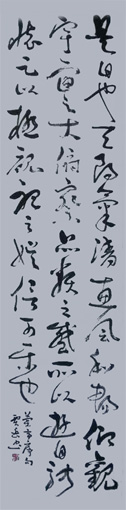 是日也天朗氣清惠風和暢仰觀
宇宙之大俯察品類之盛所以遊目騁
懷足以極視聽之娛信可樂也
蘭亭序句